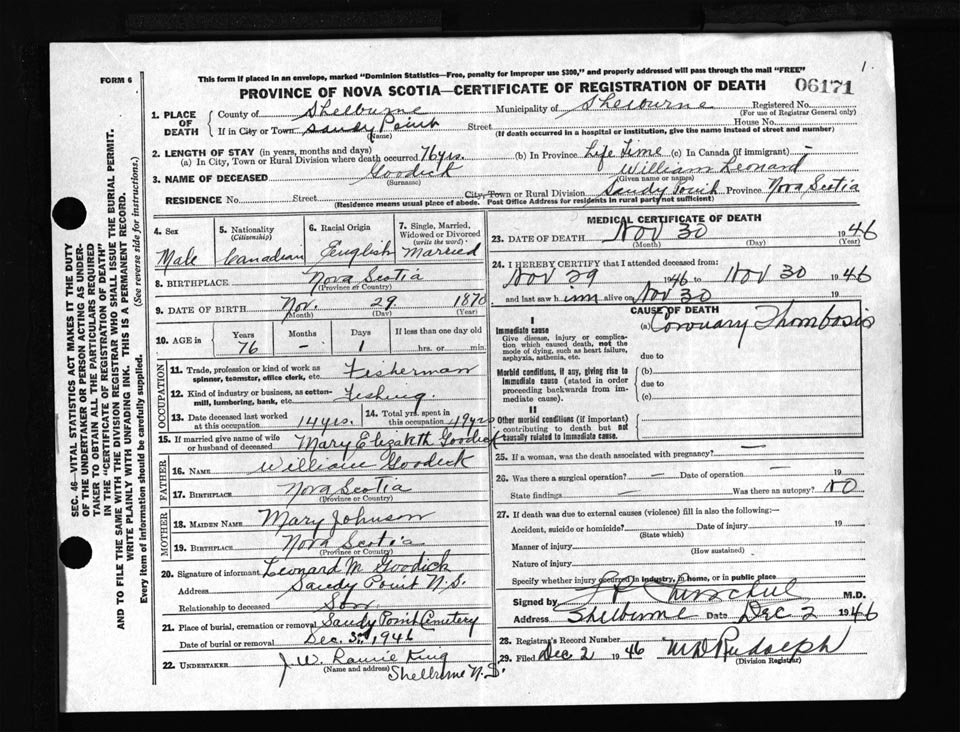 FORM 6
This form if placed in an envelope, marked "Dominion Statistics—Free, penalty for improper use $300," and properly addressed will pass through the mail "FREE"
1
PROVINCE OF NOVA SCOTIA—CERTIFICATE OF REGISTRATION OF DEATH
06171
1. PLACE OF DEATH { County of Shelburne Municipality of Shelburne Registered No. (For use of Registrar General only)
If in City or Town Sandy Point (Name) Street House No.
(If death occurred in a hospital or institution, give the name instead of street and number)
2. LENGTH OF STAY (in years, months and days)
(a) In City, Town or Rural Division where death occurred 76 yrs. (b) In Province Life Time (c) In Canada (if immigrant) -
3. NAME OF DECEASED Goodick (Surname) William Leonard (Given name or names)
RESIDENCE No. Street City, Town or Rural Division Sandy Point Province Nova Scotia
(Residence means usual place of abode. Post Office Address for residents in rural parts not sufficient)
4. Sex Male
5. Nationality (Citizenship) Canadian
6. Racial Origin English
7. Single, Married, Widowed or Divorced (write the word) Married
8. BIRTHPLACE Nova Scotia
(Province or Country)
9. DATE OF BIRTH Nov. 29 1870
(Month) (Day) (Year)
10. AGE in { Years 76 Months - Days 1 If less than one day old hrs. or min.
OCCUPATION
11. Trade, profession or kind of work as spinner, teamster, office clerk, etc. Fisherman
12. Kind of industry or business, as cotton-mill, lumbering, bank, etc. Fishing.
13. Date deceased last worked at this occupation 14 yrs.
14. Total yrs. spent in this occupation 49 yrs
15. If married give name of wife or husband of deceased Mary Elizabeth Goodick
FATHER
16. NAME William Goodick
17. BIRTHPLACE Nova Scotia
(Province or Country)
MOTHER
18. MAIDEN NAME Mary Johnson
19. BIRTHPLACE Nova Scotia
(Province or Country)
20. Signature of informant Leonard M Goodick
Address Sandy Point N.S.
Relationship to deceased Son
21. Place of burial, cremation or removal Sandy Point Cemetery
Date of burial or removal Dec. 3rd, 1946
22. UNDERTAKER J. W. King
(Name and address) Shelburne N.S.
MEDICAL CERTIFICATE OF DEATH
23. DATE OF DEATH Nov 30 1946
(Month) (Day) (Year)
24. I HEREBY CERTIFY that I attended deceased from:
Nov 29 1946 to Nov 30 1946
and last saw him alive on Nov 30 19
CAUSE OF DEATH
I
Immediate cause (a) Coronary Thombosis
Give disease, injury or complication which caused death, not the mode of dying, such as heart failure, asphyxia, asthenia, etc.
due to
Morbid conditions, if any, giving rise to immediate cause (stated in order proceeding backwards from immediate cause). { (b)
due to
(c)
II
Other morbid conditions (if important) contributing to death but not causally related to immediate cause. {
25. If a woman, was the death associated with pregnancy? —
26. Was there a surgical operation? — Date of operation — 19
State findings — Was there an autopsy? NO
27. If death was due to external causes (violence) fill in also the following:—
Accident, suicide or homicide? Date of injury 19
(State which)
Manner of injury
(How sustained)
Nature of injury
Specify whether injury occurred in industry, in home, or in public place
Signed by M.D.
Address Shelburne Date Dec 2 1946
28. Registrar's Record Number
29. Filed Dec 2 1946 M D Rudolph
(Division Registrar)
SEC. 46—VITAL STATISTICS ACT MAKES IT THE DUTY
OF THE UNDERTAKER OR PERSON ACTING AS UNDER-
TAKER TO OBTAIN ALL THE PARTICULARS REQUIRED
IN THE "CERTIFICATE OF REGISTRATION OF DEATH"
AND TO FILE THE SAME WITH THE DIVISION REGISTRAR WHO SHALL ISSUE THE BURIAL PERMIT.
WRITE PLAINLY WITH UNFADING INK. THIS IS A PERMANENT RECORD.
Every item of information should be carefully supplied. (See reverse side for instructions.)